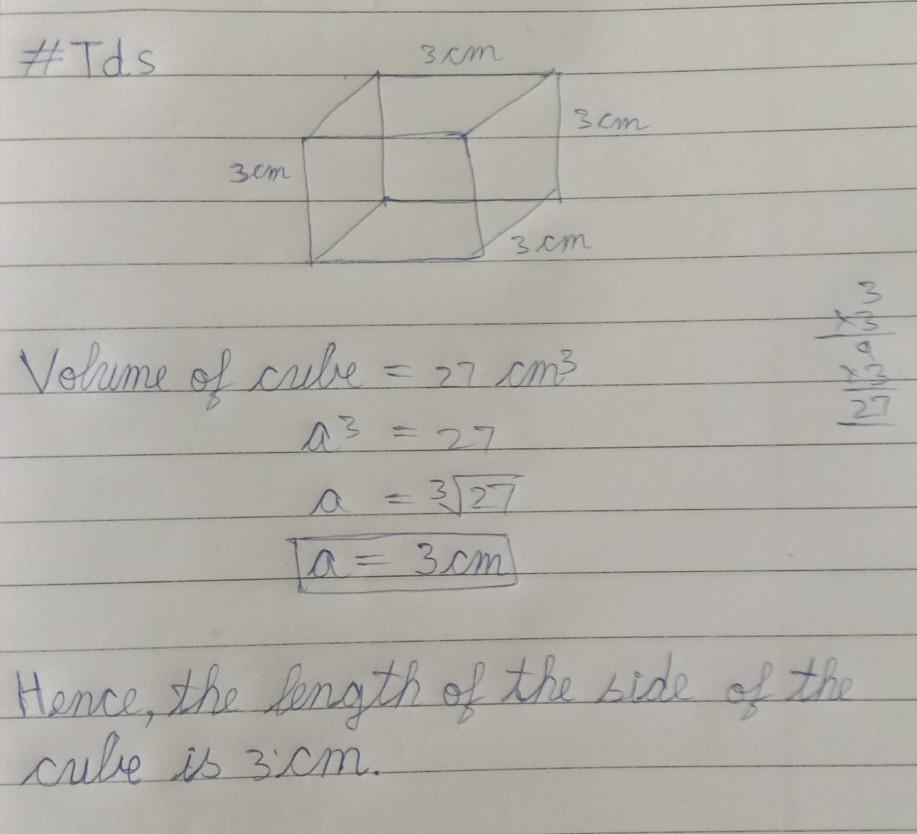 #Tds
3cm
3cm
3cm
3cm
3
×3
9
×3
27
Volume of cube = 27 cm³
a³ = 27
a = ³√27
a = 3cm
Hence, the length of the side of the
cube is 3 cm.